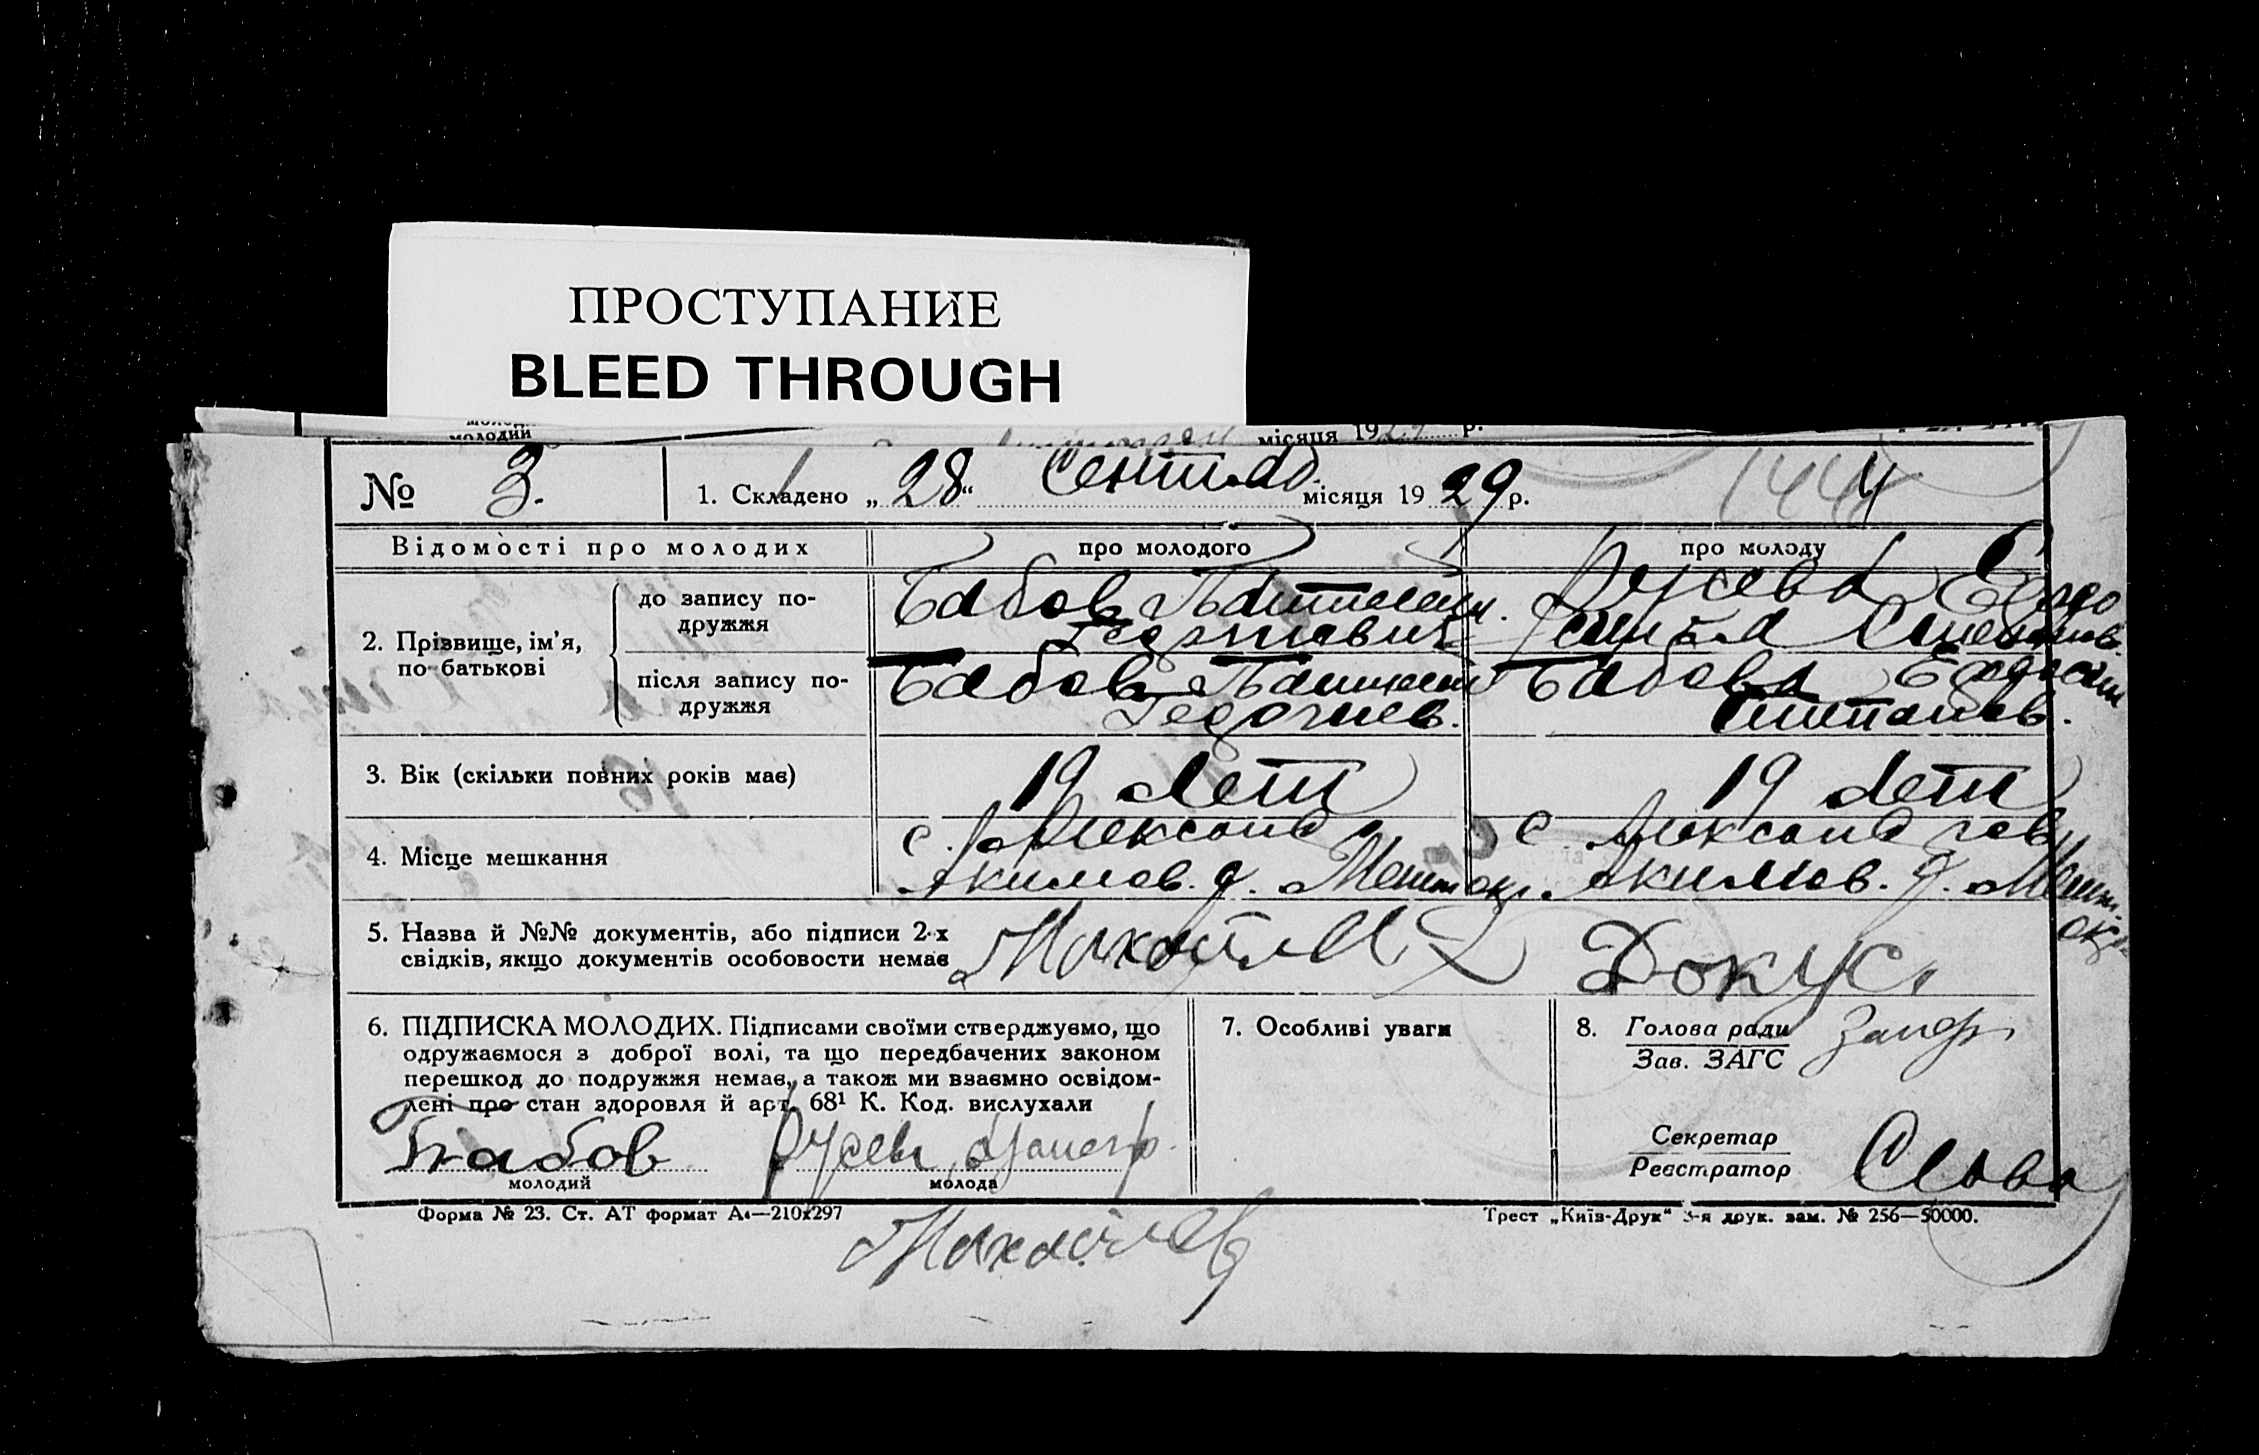 ПРОСТУПАНИЕ
BLEED THROUGH
молодий місяця 192 р.
№ 3. 1. Складено „28“ Сентяб. місяця 1929 р. 144
Відомості про молодих про молодого про молоду
2. Прізвище, ім'я, по батькові
до запису по-
дружжя
Бабов Пантелей
Георгиевич
Русева Евдо
Степанов.
після запису по-
дружжя
Бабов Пантелей
Георгиев.
Бабова Евдокия
Степанов.
3. Вік (скільки повних років має) 19 лет 19 лет
4. Місце мешкання
с. Александ
Акимов. р. Мелит окр.
с. Александров
Акимов. р. Мелит.
окр.
5. Назва й №№ документів, або підписи 2-х
свідків, якщо документів особовости немає
6. ПІДПИСКА МОЛОДИХ. Підписами своїми стверджуємо, що
одружаємося з доброї волі, та що передбачених законом
перешкод до подружжя немає, а також ми взаємно освідом-
лені про стан здоров'я й арт. 68¹ К. Код. вислухали
Бабов Русева
молодий молода
7. Особливі уваги
8. Голова ради
Зав. ЗАГС
Секретар
Реєстратор
Форма № 23. Ст. АТ формат А4—210х297
Трест „Київ-Друк“ 3-я друк. зам. № 256—50000.